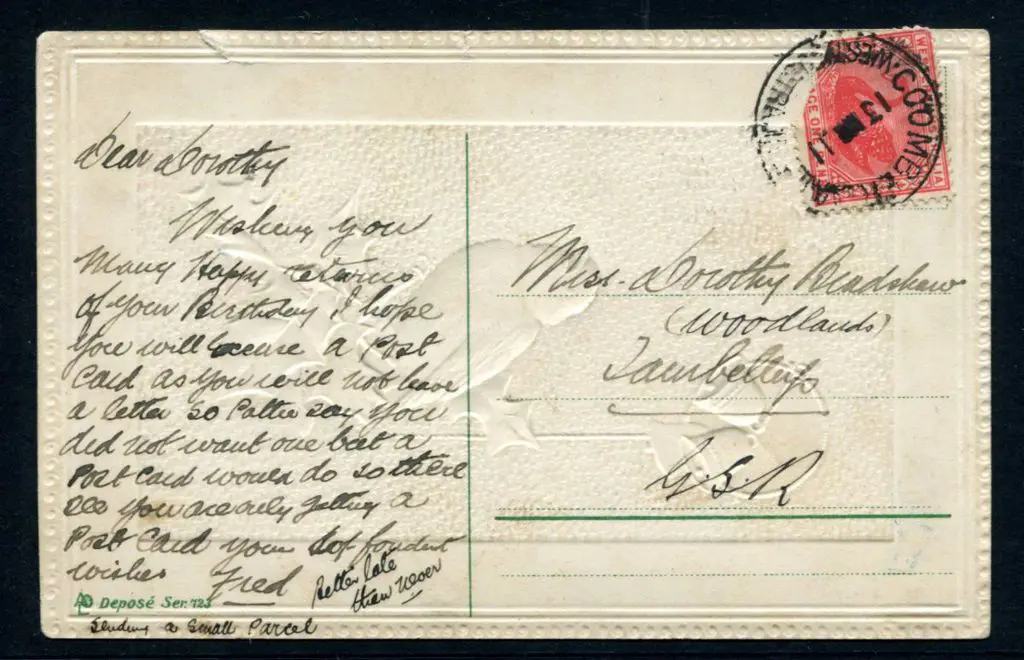 Dear Dorothy
Wishing you
Many Happy returns
of your Birthday I hope
you will excuse a Post
Card as you will not have
a letter so Pattie say you
did not want one but a
Post Card would do so there
see you are only getting a
Post Card your fondest
wishes Fred
Better late
than never
Deposé Ser. 723
Sending a Small Parcel
COOMBERDALE
WEST AUSTRALIA
13
11
Miss. Dorothy Bradshaw
(Woodlands)
Tambellup
G.S.R